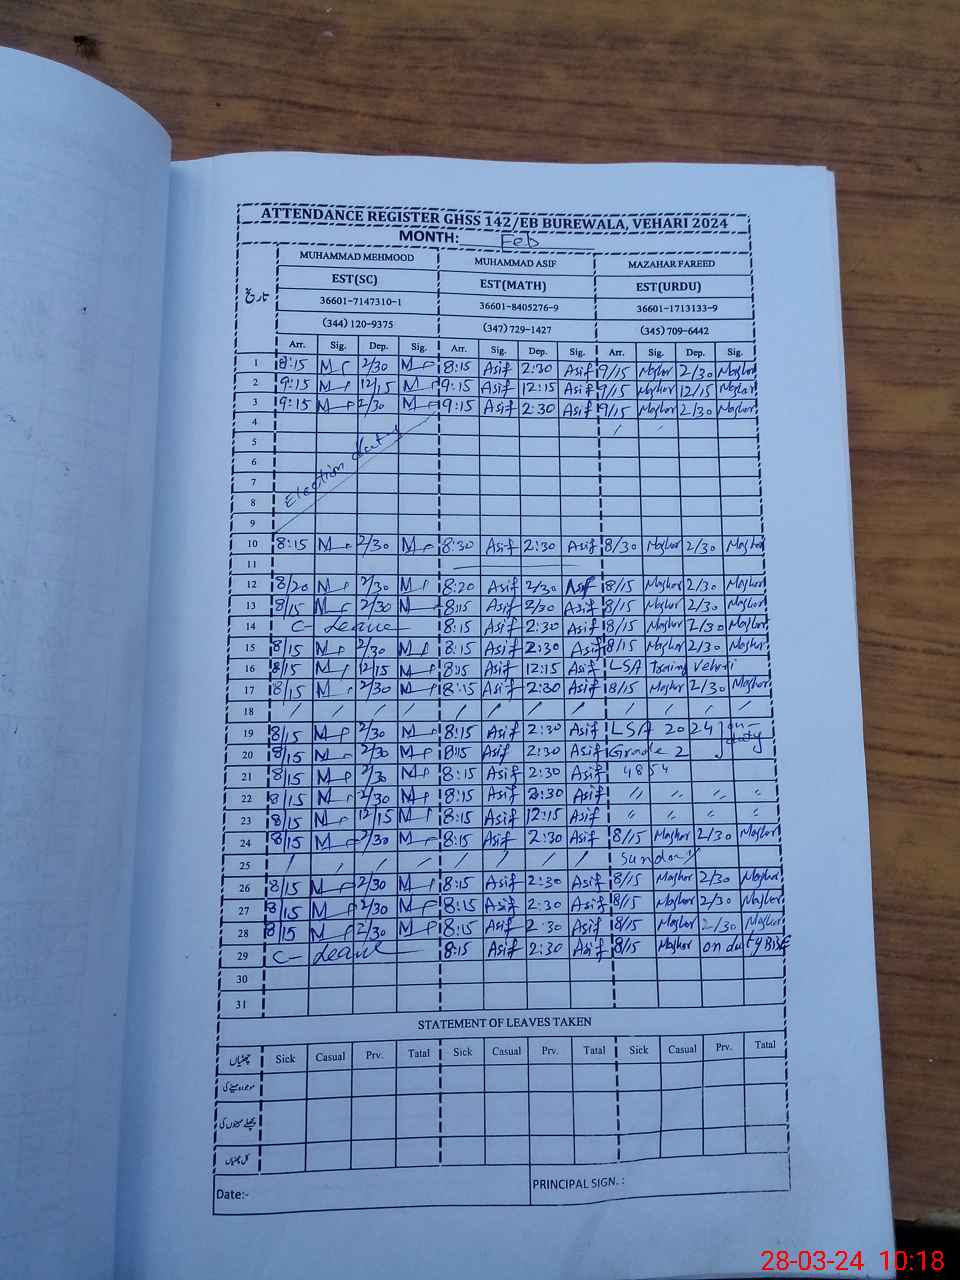 ATTENDANCE REGISTER GHSS 142/EB BUREWALA, VEHARI 2024
MONTH: Feb
تاریخ
MUHAMMAD MEHMOOD MUHAMMAD ASIF MAZAHAR FAREED
EST(SC) EST(MATH) EST(URDU)
36601-7147310-1 36601-8405276-9 36601-1713133-9
(344) 120-9375 (347) 729-1427 (345) 709-6442
Arr. Sig. Dep. Sig. Arr. Sig. Dep. Sig. Arr. Sig. Dep. Sig.
1 8:15 2/30 8:15 Asif 2:30 Asif 9/15 2/30
2 9:15 12/15 9:15 Asif 12:15 Asif 9/15 12/15
3 9:15 2/30 9:15 Asif 2:30 Asif 9/15 2/30
4
5
6 Election duty
7
8
9
10 8:15 2/30 8:30 Asif 2:30 Asif 8/30 2/30
11
12 8/20 2/30 8:20 Asif 2/30 Asif 8/15 2/30
13 8/15 2/30 8:15 Asif 2/30 Asif 8/15 2/30
14 C- Leave 8:15 Asif 2:30 Asif 8/15 2/30
15 8/15 2/30 8:15 Asif 2:30 Asif 8/15 2/30
16 8/15 12/15 8:15 Asif 12:15 Asif LSA Vehari
17 8/15 2/30 8:15 Asif 2:30 Asif 8/15 2/30
18 / / / / / / / / / / / /
19 8/15 2/30 8:15 Asif 2:30 Asif LSA 2024 on-duty
20 8/15 2/30 8:15 Asif 2:30 Asif Grade 2
21 8/15 2/30 8:15 Asif 2:30 Asif 4854
22 8/15 2/30 8:15 Asif 2:30 Asif " " " "
23 8/15 12/15 8:15 Asif 12:15 Asif " " " "
24 8/15 2/30 8:15 Asif 2:30 Asif 8/15 2/30
25 / / / / / / / / Sunday
26 8/15 2/30 8:15 Asif 2:30 Asif 8/15 2/30
27 8/15 2/30 8:15 Asif 2:30 Asif 8/15 2/30
28 8/15 2/30 8:15 Asif 2:30 Asif 8/15 2/30
29 C- Leave 8:15 Asif 2:30 Asif 8/15 on duty BISE
30
31
STATEMENT OF LEAVES TAKEN
چھٹیاں Sick Casual Prv. Tatal Sick Casual Prv. Tatal Sick Casual Prv. Tatal
Date:- PRINCIPAL SIGN. :
28-03-24 10:18